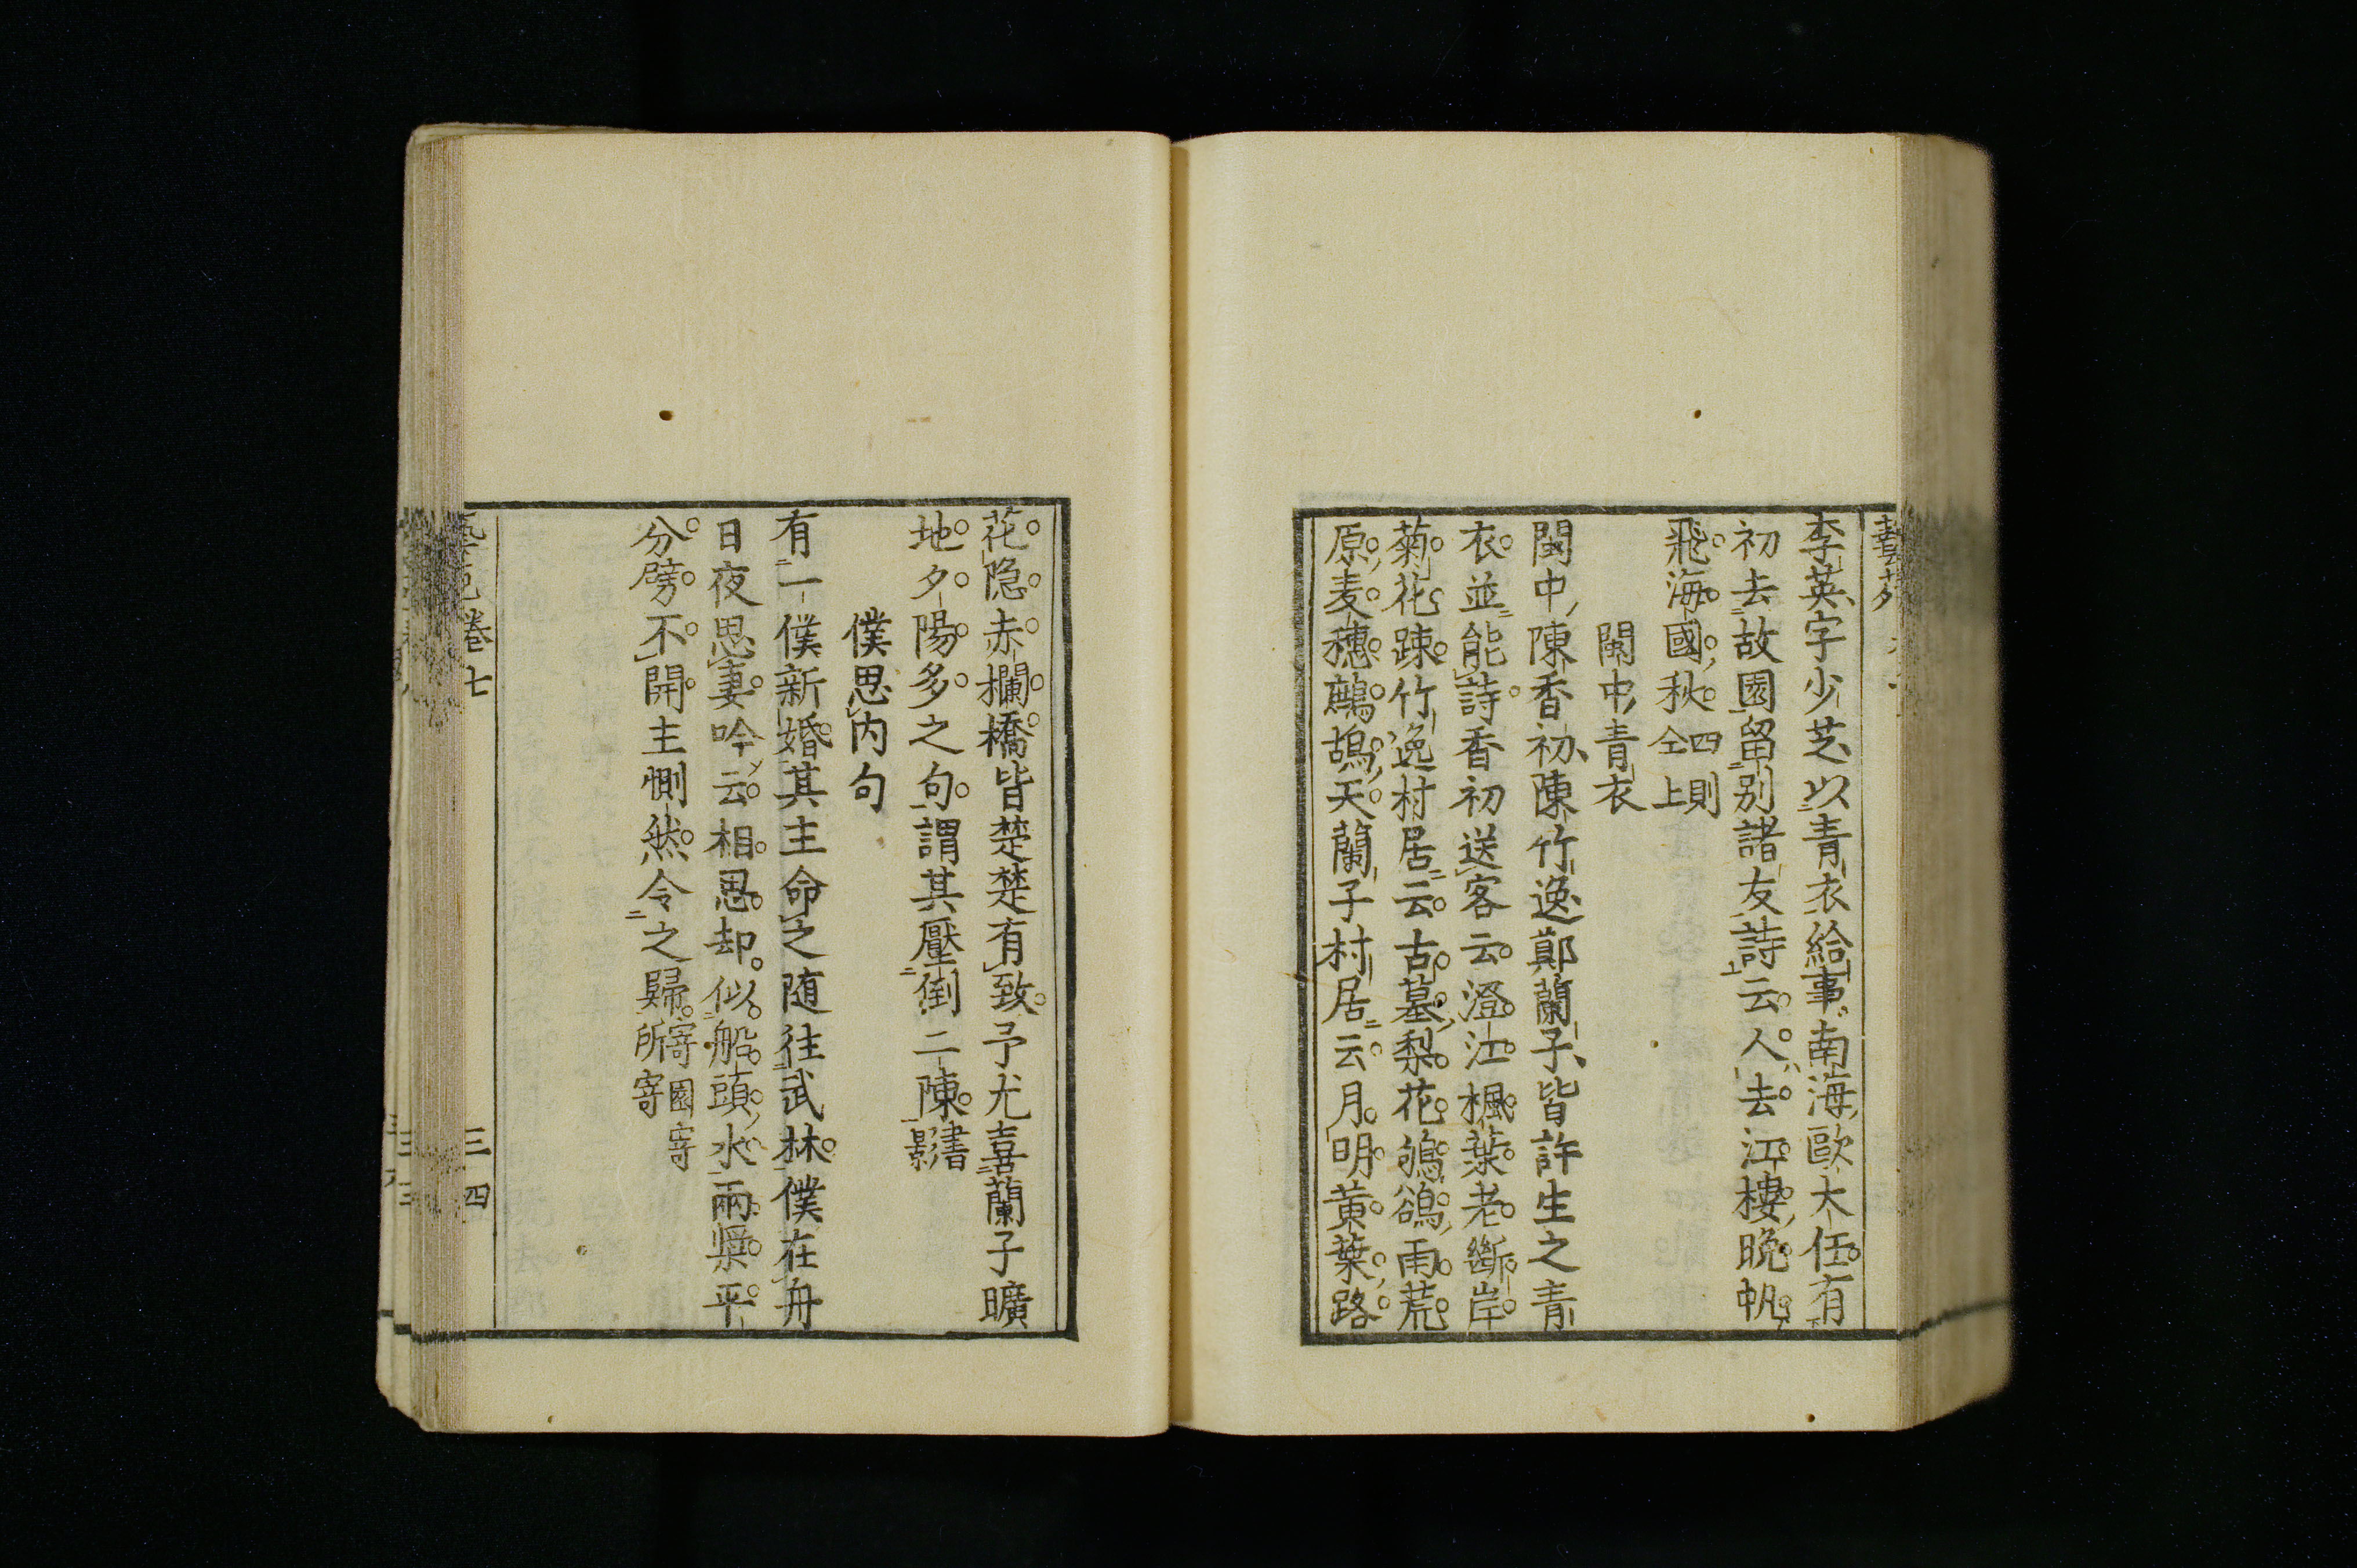 李英字少芝以青衣給事南海歐大任有
初去故園留別諸友詩云人去江樓晩帆
飛海國秋四則仝上
閩中青衣
閩中陳香初陳竹逸鄭蘭子皆許生之青
衣並能詩香初送客云澄江楓葉老斷岸
菊花踈竹逸村居云古墓梨花鵓鴿雨荒
原麦穗鷓鴣天蘭子村居云月明黄葉路
花隐赤欄橋皆楚楚有致予尤喜蘭子曠
地夕陽多之句謂其壓倒二陳書影
僕思内句
有一僕新婚其主命之随往武林僕在舟
日夜思妻吟云相思却似船頭水兩槳平
分劈不開主惻然令之歸寄園寄所寄
卷七
三四